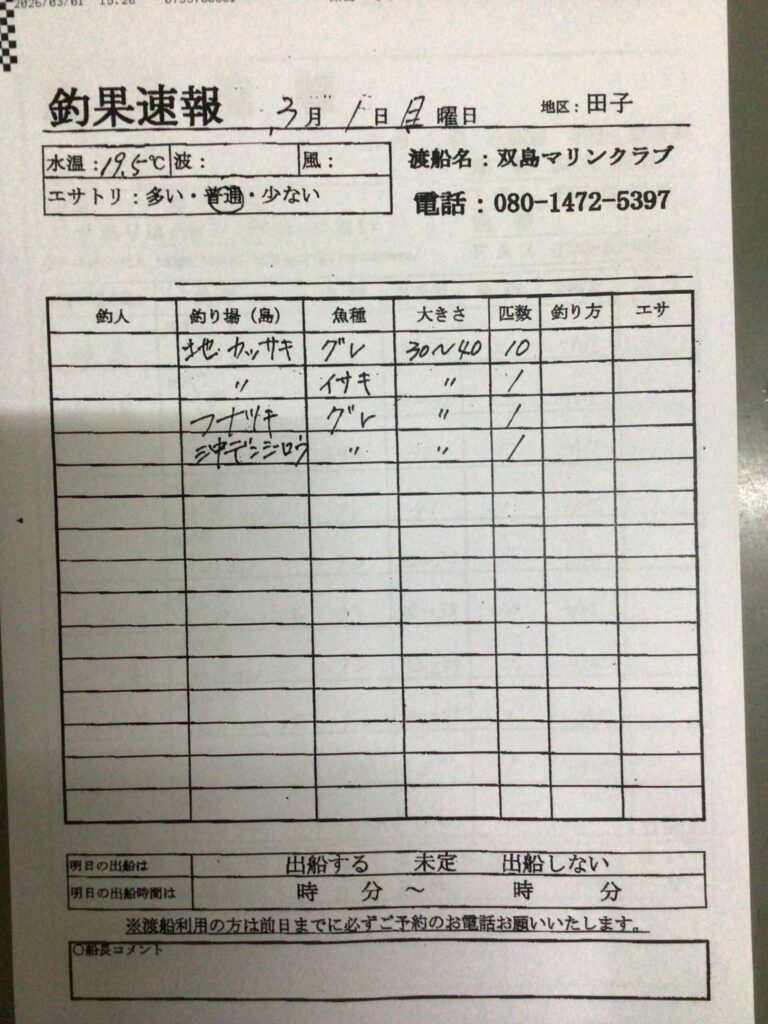 2026/03/01 15:26
釣果速報 3月 1日 日曜日 地区：田子
水温：19.5℃ 波： 風：
エサトリ：多い・普通・少ない
渡船名：双島マリンクラブ
電話：080-1472-5397
釣人 釣り場（島） 魚種 大きさ 匹数 釣り方 エサ
地・カッサキ グレ 30～40 10
〃 イサキ 〃 1
フナツキ グレ 〃 1
沖デンジロウ 〃 〃 1
明日の出船は 出船する 未定 出船しない
明日の出船時間は 時 分 ～ 時 分
※渡船利用の方は前日までに必ずご予約のお電話お願いいたします。
○船長コメント